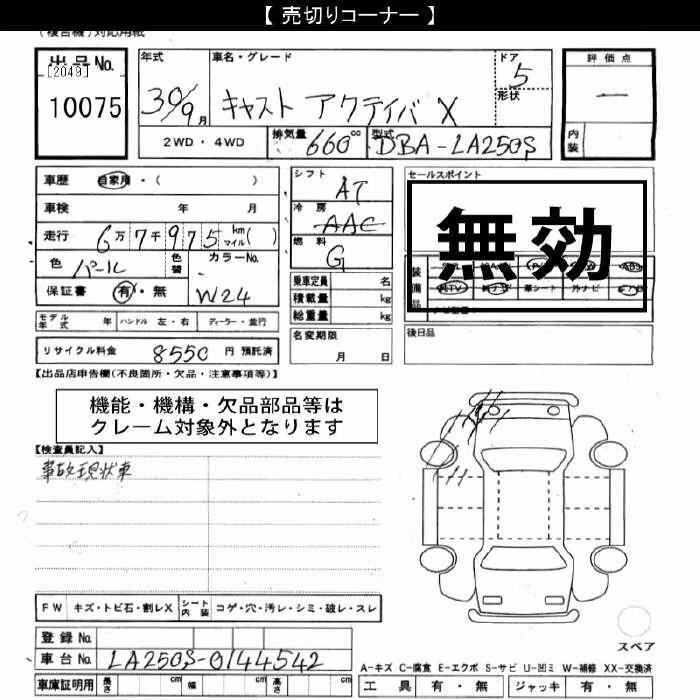 【 売切りコーナー 】
(複合機)対応用紙
出品No.
[2049]
10075
年式
30/9月
車名・グレード
キャスト アクティバ X
ドア
5
形状
評価点
ー
内装
2WD・4WD
排気量
660cc
型式
DBA-LA250S
車歴 自家用・( )
車検 年 月
走行 6万7千975 km マイル( )
色 パール
色替
カラーNo.
W24
保証書 有・無
シフト
AT
冷房
AAC
燃料
G
乗車定員 名
積載量 kg
総重量 kg
セールスポイント
無効
装備品
純TV 純ナビ 革シート 外ナビ エアB
モデル年式 年 ハンドル 左・右 ディーラー・並行
リサイクル料金 8550 円 預託済
名変期限
月 日
後日品
【出品店申告欄(不良箇所・欠品・注意事項等)】
機能・機構・欠品部品等は
クレーム対象外となります
【検査員記入】
事故現状車
FW キズ・トビ石・割レX シート内装 コゲ・穴・汚レ・シミ・破レ・スレ
登録No.
車台No. LA250S-0144542
スペア
A-キズ C-腐食 E-エクボ S-サビ U-凹ミ W-補修 XX-交換済
車庫証明用 長さ cm 幅 cm 高さ cm
工具 有・無 ジャッキ 有・無